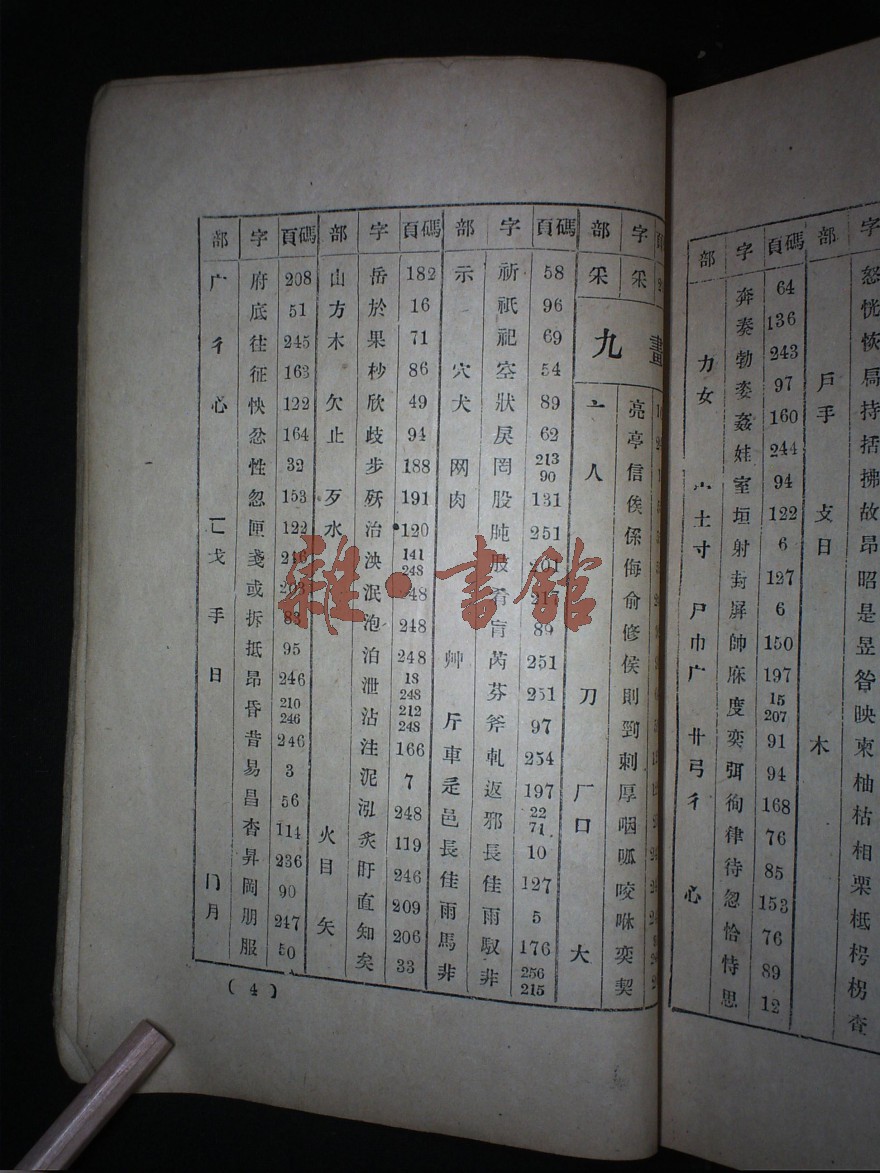 部 字 頁碼 部 字 頁碼 部 字 頁碼 部 字
广 府 208 山 岳 182 示 祈 58 釆 釆
底 51 方 於 16 祇 96
彳 往 245 木 果 71 祀 69 九畫
征 163 杪 86 穴 空 54
心 怏 122 欠 欣 49 犬 狀 89 亠 亮
忿 164 止 歧 94 戾 62 亭
性 32 步 188 网 罔 213 90 人 信
忽 153 歹 殀 191 肉 股 131 俟
匚 匣 122 水 治 120 肫 251 係
戈 戔 246 泱 141 248 侮
或 203 泯 48 肴 217 俞
手 拆 83 泡 248 肓 89 修
抵 95 泊 248 艸 芮 251 侯
日 昂 246 泄 18 248 芬 251 刀 則
昏 210 246 沾 212 248 斤 斧 97 剄
昔 246 注 166 車 軋 254 剌
易 3 泥 7 辵 返 197 厂 厚
昌 56 泓 248 邑 邪 22 71 口 咽
杳 114 火 炙 119 長 長 10 呱
昇 236 目 盱 246 佳 佳 127 咬
冂 岡 90 直 209 雨 雨 5 咻
月 朋 247 矢 知 206 馬 馭 176 大 奕
服 50 矣 33 非 非 256 215 契
(4)
雜·書館
部 字 頁碼 部 字
奔 64 怒
奏 136 恍
力 勃 243 恢
女 委 97 戶 扃
姦 160 手 持
娃 244 括
宀 室 94 拂
土 垣 122 攴 故
寸 射 6 日 昂
封 127 昭
尸 屏 6 是
巾 帥 150 昱
广 庥 197 昝
度 15 207 映
廾 奕 91 木 柬
弓 弭 94 柚
彳 徇 168 枯
律 76 相
待 85 栗
心 忽 153 柢
恰 76 枵
恃 89 柺
思 12 查